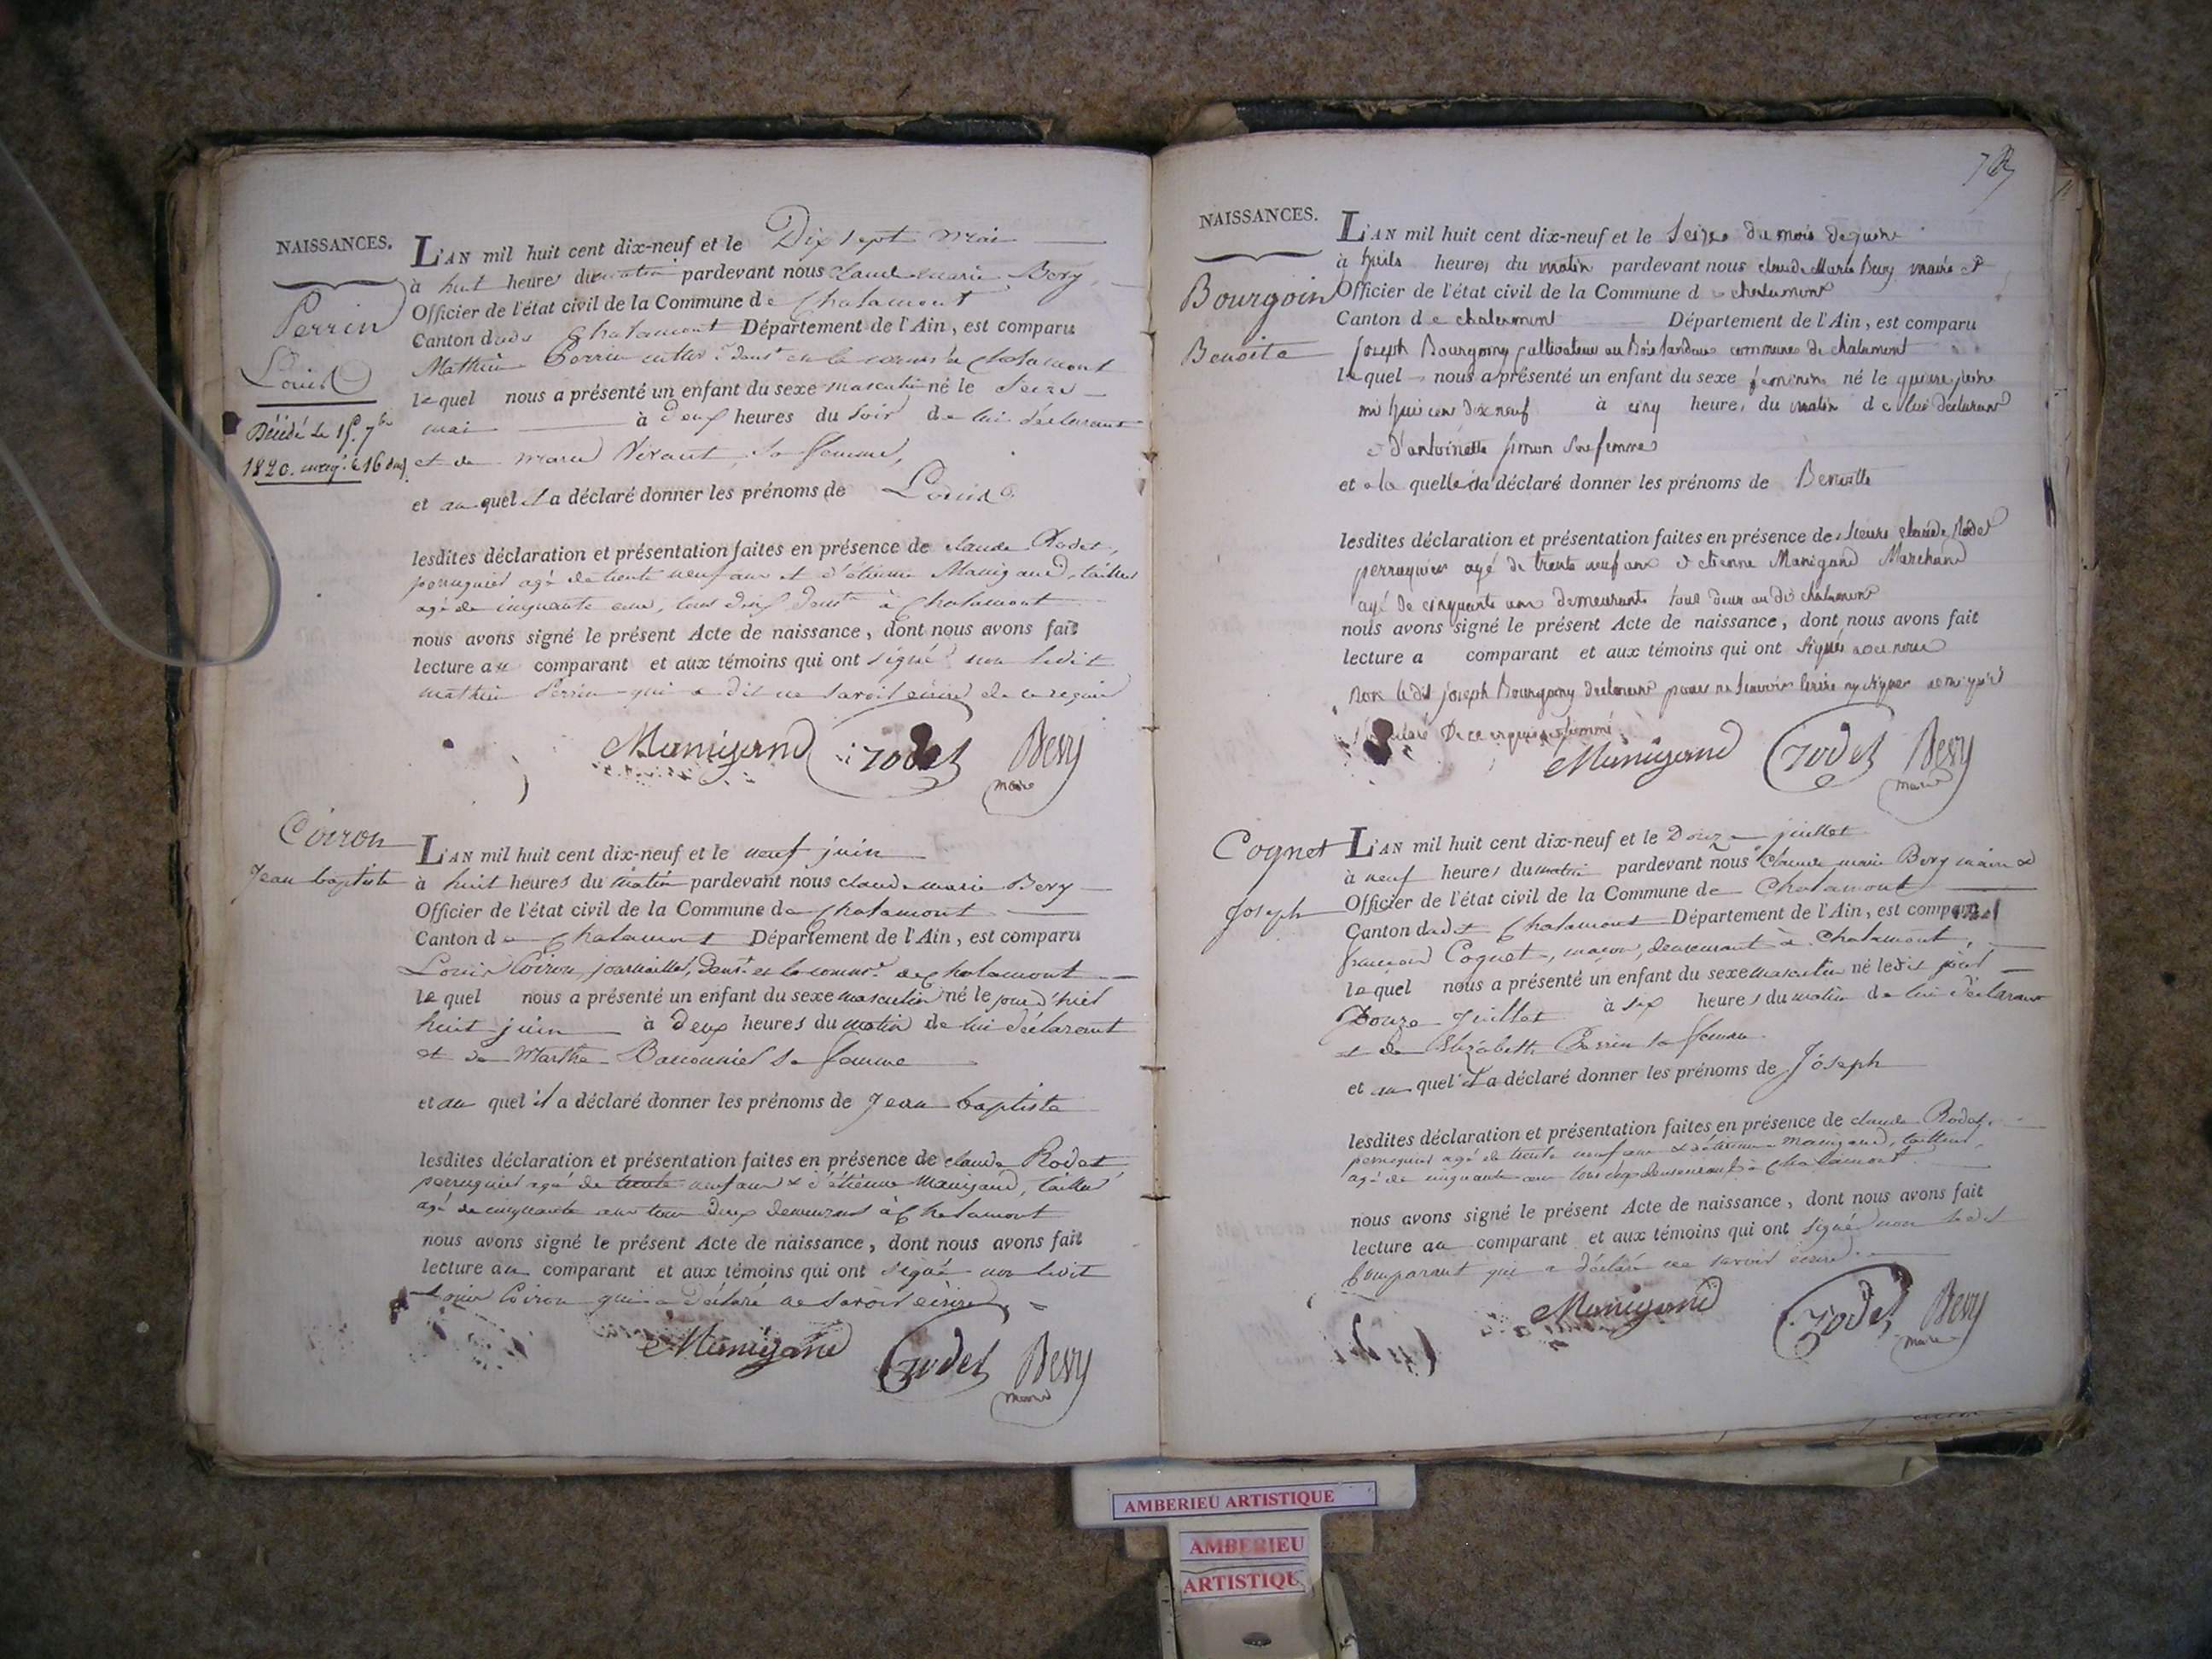 NAISSANCES.
Perrin
Louis
Décédé le 15. 7bre
1820.
L'AN mil huit cent dix-neuf et le Dix sept mai
à huit heures du matin pardevant nous claude marie Bevy
Officier de l'état civil de la Commune de Chalamont
Canton dudit Chalamont Département de l'Ain, est comparu
Mathieu Perrin Chalamont
lequel nous a présenté un enfant du sexe masculin né le Seize
mai à Deux heures du soir de lui déclarant
et de marie sa femme,
et auquel il a déclaré donner les prénoms de Louis
lesdites déclaration et présentation faites en présence de claude Rodet,
perruquier agé de trente neuf ans et d'étienne Manigand, tailleur
agé de cinquante ans, tous deux demt à Chalamont
nous avons signé le présent Acte de naissance, dont nous avons fait
lecture au comparant et aux témoins qui ont signé non ledit
mathieu Perrin qui a dit ne savoir écrire de ce requis
Manigand Rodet Bevy
maire
Coiron
Jean baptiste
L'AN mil huit cent dix-neuf et le neuf juin
à huit heures du matin pardevant nous claude marie Bevy
Officier de l'état civil de la Commune de Chalamont
Canton de Chalamont Département de l'Ain, est comparu
Louis Coiron, journallier, demt en la comme de Chalamont
lequel nous a présenté un enfant du sexe masculin né le jour d'hier
huit juin à deux heures du matin de lui déclarant
et de Marthe sa femme
et au quel il a déclaré donner les prénoms de Jean baptiste
lesdites déclaration et présentation faites en présence de claude Rodet
perruquier agé de trente neuf ans & d'étienne Manigand, tailleur
agé de cinquante ans tous deux demeurant à Chalamont
nous avons signé le présent Acte de naissance, dont nous avons fait
lecture au comparant et aux témoins qui ont signé non ledit
Louis Coiron qui a déclaré ne savoir écrire
Manigand Rodet Bevy
maire
NAISSANCES.
Bourgoin
Benoite
L'AN mil huit cent dix-neuf et le seize du mois de juin
à huits heures du matin pardevant nous claude Marie Bevy maire et
Officier de l'état civil de la Commune de chalamont
Canton de chalamont Département de l'Ain, est comparu
joseph Bourgoing cultivateur au commune de chalamont
lequel nous a présenté un enfant du sexe feminin né le quinze juin
mil huit cent dix neuf à cinq heures du matin de lui declarant
et d'antoinette simon sa femme
et a la quelle il a déclaré donner les prénoms de Benoitte
lesdites déclaration et présentation faites en présence des sieurs claude Rodet
perruquier agé de trente neuf ans et etienne Manigand Marchand
agé de cinquante ans demeurants tous deux au dit chalamont
nous avons signé le présent Acte de naissance, dont nous avons fait
lecture a comparant et aux témoins qui ont signés avec nous
non le dit joseph Bourgoing
Manigand Rodet Bevy
maire
Cognet
Joseph
L'AN mil huit cent dix-neuf et le Douze juillet
à neuf heures du matin pardevant nous Claude marie Bevy maire &
Officier de l'état civil de la Commune de Chalamont
Canton dudit Chalamont Département de l'Ain, est comparu
francois Cognet, maçon, demeurant à Chalamont,
lequel nous a présenté un enfant du sexe masculin né le dit jour
Douze Juillet à six heures du matin de lui déclarant
et de Elizabeth Perrin sa femme
et au quel il a déclaré donner les prénoms de Joseph
lesdites déclaration et présentation faites en présence de claude Rodet,
perruquier agé de trente neuf ans & d'étienne Manigand, tailleur,
agé de cinquante ans tous deux demeurant à Chalamont
nous avons signé le présent Acte de naissance, dont nous avons fait
lecture au comparant et aux témoins qui ont signé non ledit
Comparant qui a déclaré ne savoir écrire.
Manigand Rodet Bevy
maire
AMBERIEU ARTISTIQUE
AMBERIEU
ARTISTIQU